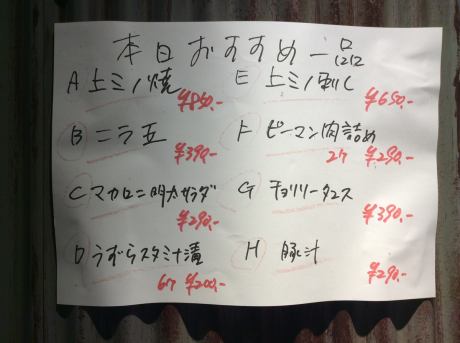 本日おすすめ一品
A 上ミノ焼
¥850.-
B ニラ玉
¥390.-
C マカロニ明太サラダ
¥290.-
D うずらスタミナ漬
6ケ ¥200.-
E 上ミノ刺し
¥650.-
F ピーマン肉詰め
2ケ ¥290.-
G チョリソータコス
¥390.-
H 豚汁
¥290.-